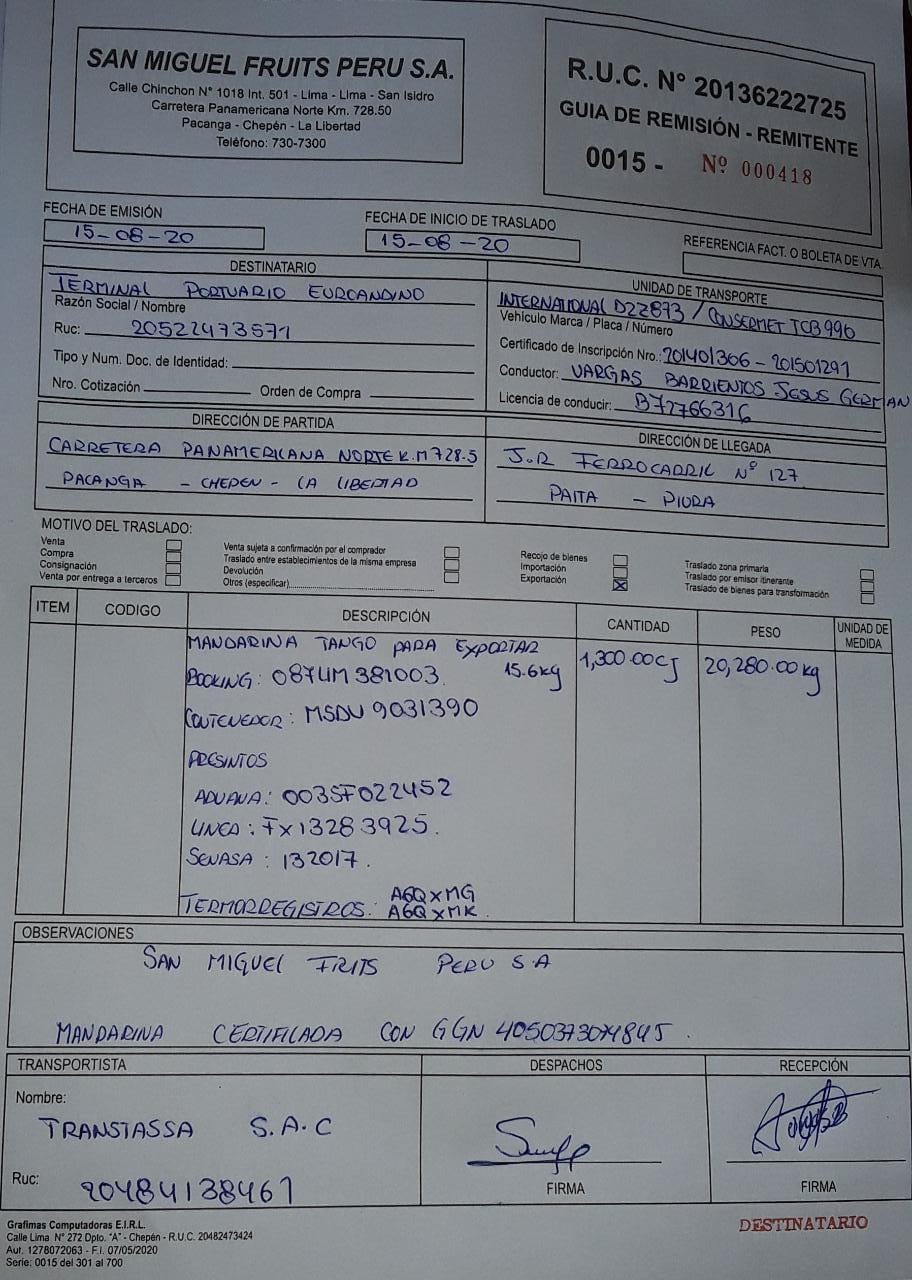 SAN MIGUEL FRUITS PERU S.A.
Calle Chinchon N° 1018 Int. 501 - Lima - Lima - San Isidro
Carretera Panamericana Norte Km. 728.50
Pacanga - Chepén - La Libertad
Teléfono: 730-7300
R.U.C. N° 20136222725
GUIA DE REMISIÓN - REMITENTE
0015 - Nº 000418
FECHA DE EMISIÓN
15-08-20
FECHA DE INICIO DE TRASLADO
15-08-20
REFERENCIA FACT. O BOLETA DE VTA.
DESTINATARIO
TERMINAL PORTUARIO EUROANDINO
Razón Social / Nombre
Ruc: 20522473571
Tipo y Num. Doc. de Identidad:
Nro. Cotización Orden de Compra
UNIDAD DE TRANSPORTE
INTERNATIONAL D2Z873 / CONSERMET TCB996
Vehículo Marca / Placa / Número
Certificado de Inscripción Nro.: 201401306 - 201501291
Conductor: VARGAS BARRIENTOS JESUS GERMAN
Licencia de conducir: B72766316
DIRECCIÓN DE PARTIDA
CARRETERA PANAMERICANA NORTE K.M 728.5
PACANGA - CHEPEN - LA LIBERTAD
DIRECCIÓN DE LLEGADA
J.R FERROCARRIL Nº 127
PAITA - PIURA
MOTIVO DEL TRASLADO:
Venta
Compra
Consignación
Venta por entrega a terceros
Venta sujeta a confirmación por el comprador
Traslado entre establecimientos de la misma empresa
Devolución
Otros (especificar)
Recojo de bienes
Importación
Exportación X
Traslado zona primaria
Traslado por emisor itinerante
Traslado de bienes para transformación
ITEM CODIGO DESCRIPCIÓN CANTIDAD PESO UNIDAD DE MEDIDA
MANDARINA TANGO PARA EXPORTAR
BOOKING: 087UM381003. 15.6kg 1,300.00CJ 20,280.00kg
CONTENEDOR: MSDU 9031390
PRESINTOS
ADUANA: 003SF022452
LINEA: FX13283925.
SENASA: 132017.
TERMORREGISTROS: A6QXMG
A6QXMK.
OBSERVACIONES
SAN MIGUEL FRITS PERU S.A
MANDARINA CERTIFICADA CON GGN 4050373074845.
TRANSPORTISTA
Nombre:
TRANSTASSA S.A.C
Ruc: 20484138461
DESPACHOS
FIRMA
RECEPCIÓN
FIRMA
Grafimas Computadoras E.I.R.L.
Calle Lima N° 272 Dpto. "A" - Chepén - R.U.C. 20482473424
Aut. 1278072063 - F.I. 07/05/2020
Serie: 0015 del 301 al 700
DESTINATARIO